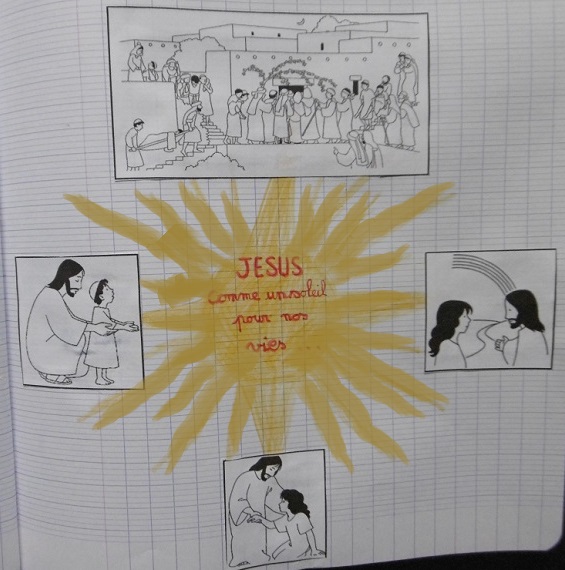 JESUS
comme un soleil
pour nos
vies